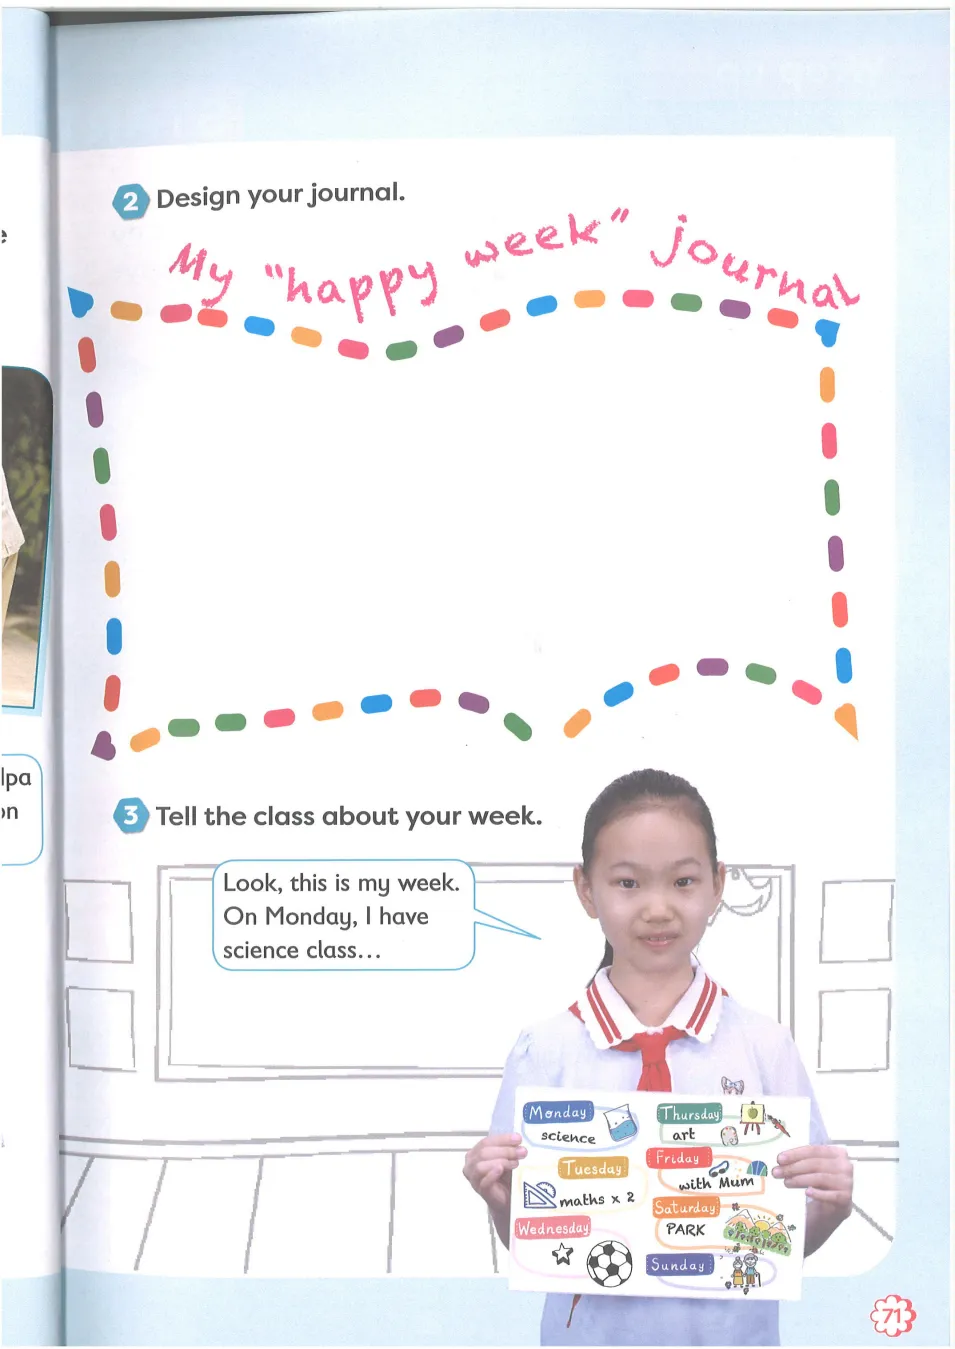 2 Design your journal.
My "happy week" journal
3 Tell the class about your week.
Look, this is my week.
On Monday, I have
science class...
Monday
science
Tuesday
maths x 2
Wednesday
Thursday
art
Friday
with Mum
Saturday
PARK
Sunday
lpa
on
71